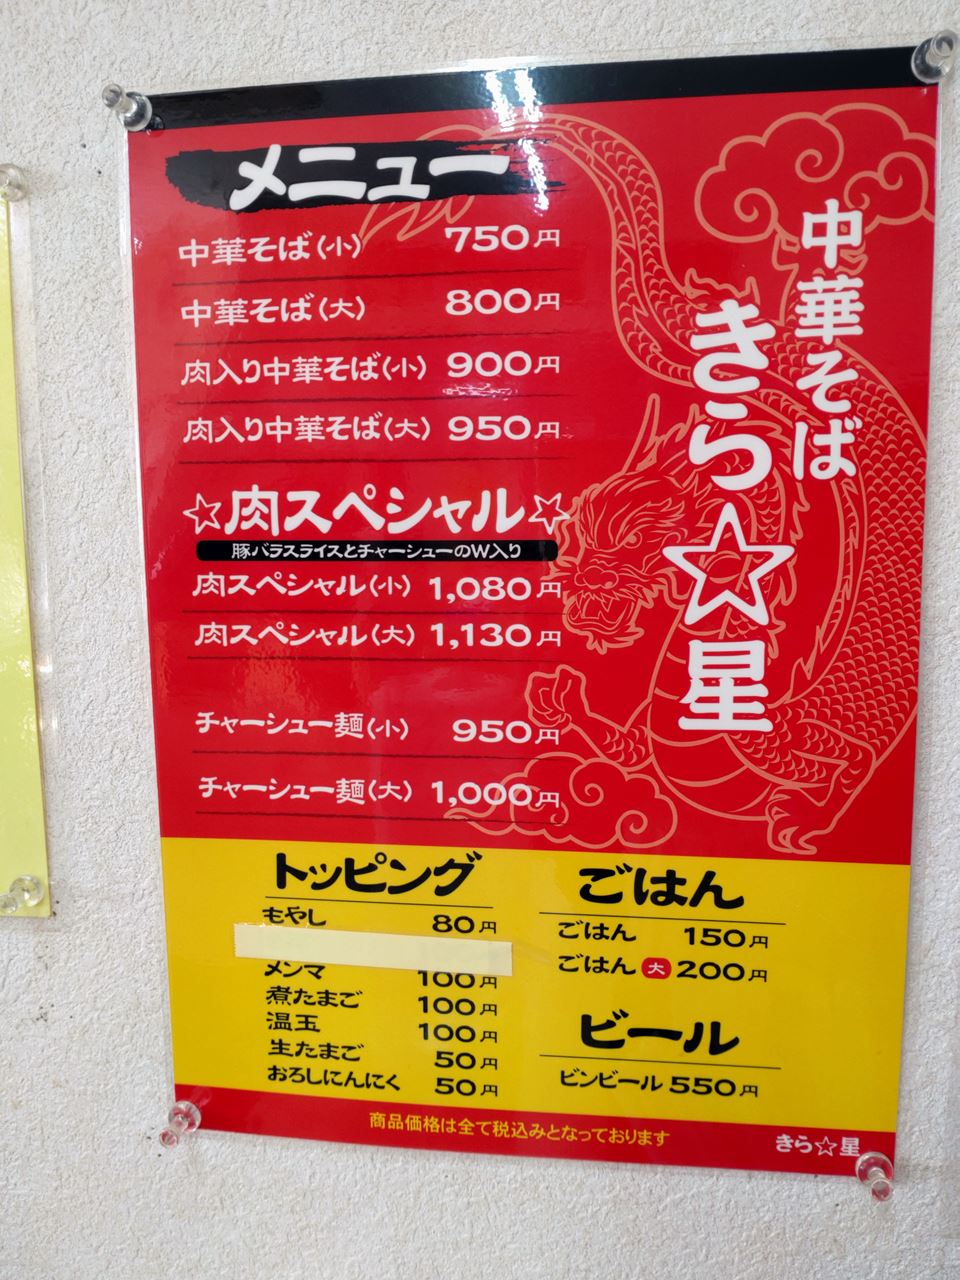 メニュー
中華そば(小) 750円
中華そば(大) 800円
肉入り中華そば(小) 900円
肉入り中華そば(大) 950円
☆肉スペシャル☆
豚バラスライスとチャーシューのW入り
肉スペシャル(小) 1,080円
肉スペシャル(大) 1,130円
チャーシュー麺(小) 950円
チャーシュー麺(大) 1,000円
中華そば
きら☆星
トッピング
もやし 80円
メンマ 100円
煮たまご 100円
温玉 100円
生たまご 50円
おろしにんにく 50円
ごはん
ごはん 150円
ごはん 大 200円
ビール
ビンビール 550円
商品価格は全て税込みとなっております
きら☆星